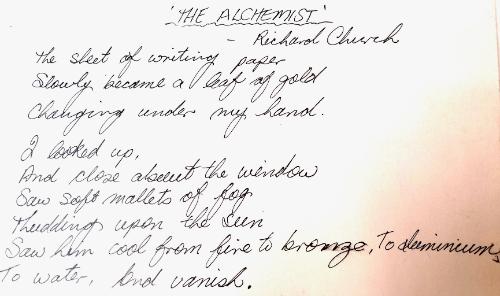 'THE ALCHEMIST'
- Richard Church
The sheet of writing paper
Slowly became a leaf of gold
Changing under my hand.
I looked up,
And close about the window
Saw soft mallets of fog
Thudding upon the Sun
Saw him cool from fire to bronze, To aluminium,
To water, And vanish.